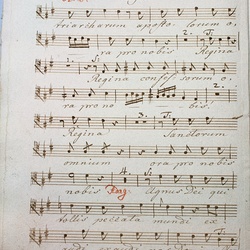 triarcharum aposto lorum o
ra pro nobis 2. Regina
Regina confessorum o.
ra pro no bis. 2.
Regina Sanctorum
omnium ora pro nobis
nobis 4. Agnus Dei qui
tollis peccata mundi ex